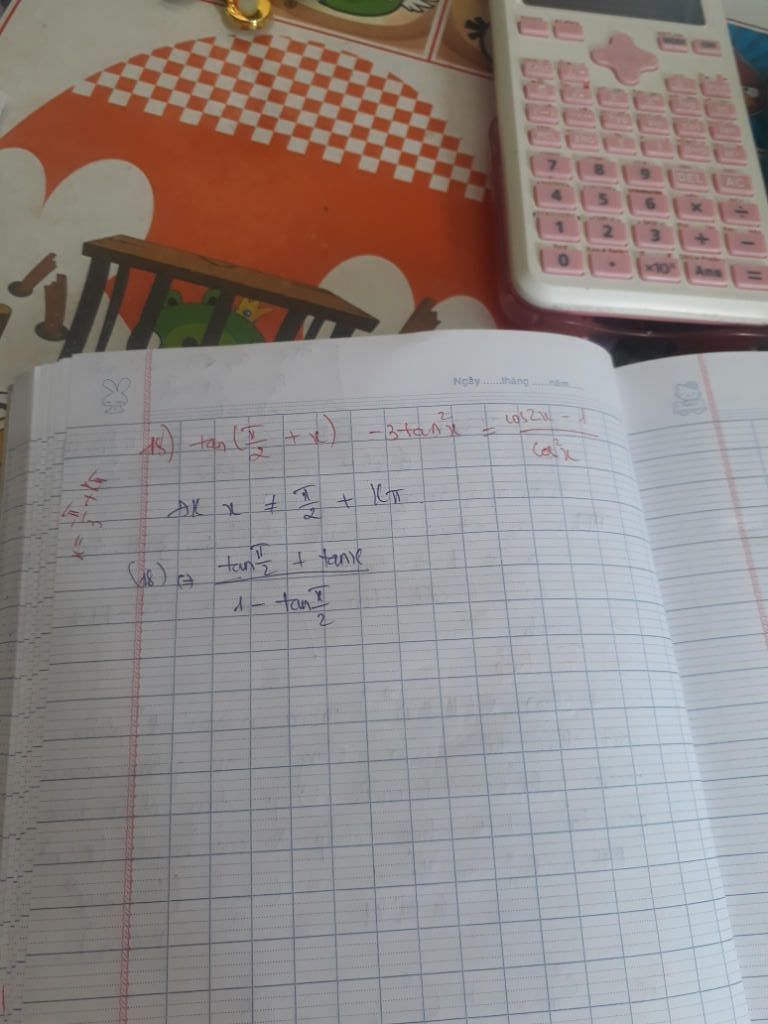 7 8 9 DEL AC
4 5 6 × ÷
1 2 3 + −
0 . ×10ˣ Ans =
Ngày ......tháng ......năm
18) tan(π/2 + x) - 3tan²x = (cos2x - 1)/cos²x
x = -π/3 + kπ
ĐK x ≠ π/2 + kπ
(18) ⇔ (tan π/2 + tanx)/(1 - tan π/2)